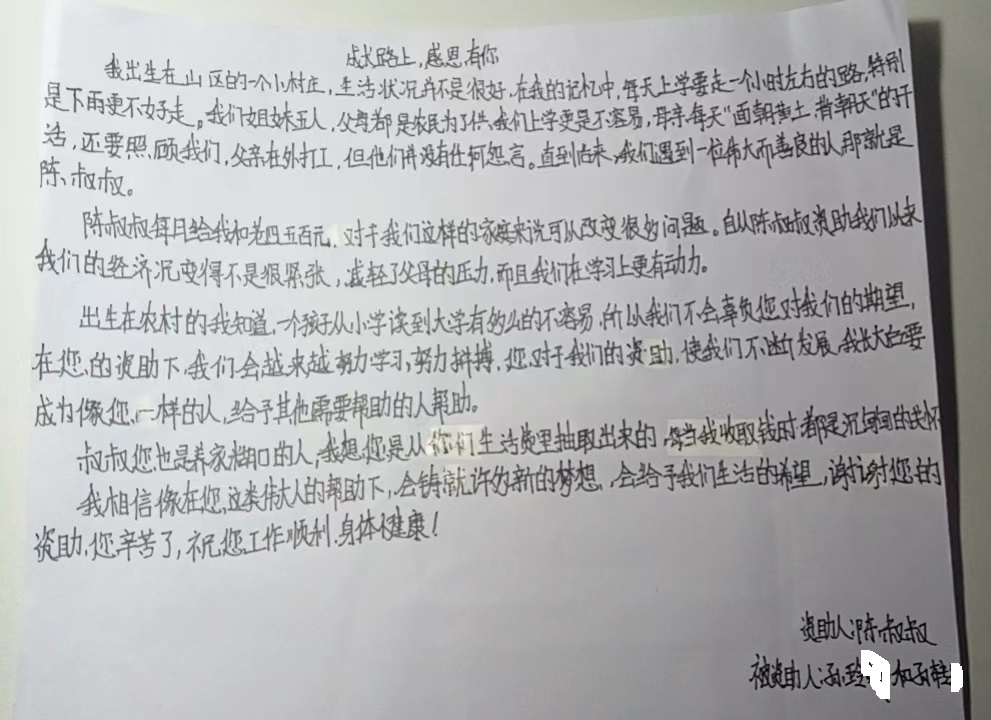 成长路上，感恩有你
我出生在山区的一个小村庄，生活状况并不是很好，在我的记忆中，每天上学要走一个小时左右的路，特别
是下雨更不好走。我们姐妹五人，父母都是农民为了供我们上学更是不容易，母亲每天"面朝黄土，背朝天"的干
活，还要照顾我们，父亲在外打工，但他们并没有任何怨言。直到后来，我们遇到一位伟大而善良的人，那就是
陈叔叔。
陈叔叔每月给我和老四五百元，对于我们这样的家庭来说可以改变很多问题。自从陈叔叔资助我们以来
我们的经济况变得不是很紧张，减轻了父母的压力，而且我们在学习上更有动力。
出生在农村的我知道，一个孩子从小学读到大学有多么的不容易，所以我们不会辜负您对我们的期望，
在您的资助下，我们会越来越努力学习，努力拼搏，您对于我们的资助，使我们不断发展，我长大也要
成为像您一样的人，给予其他需要帮助的人帮助。
叔叔您也是养家糊口的人，我想您是从你们生活费里抽取出来的，每当我收取钱时都是沉甸甸的关怀
我相信像在您这类伟大人的帮助下，会铸就许多新的梦想，会给予我们生活的希望，谢谢您的
资助，您辛苦了，祝您工作顺利，身体健康！
资助人：陈叔叔
被资助人：孙玲 和孙